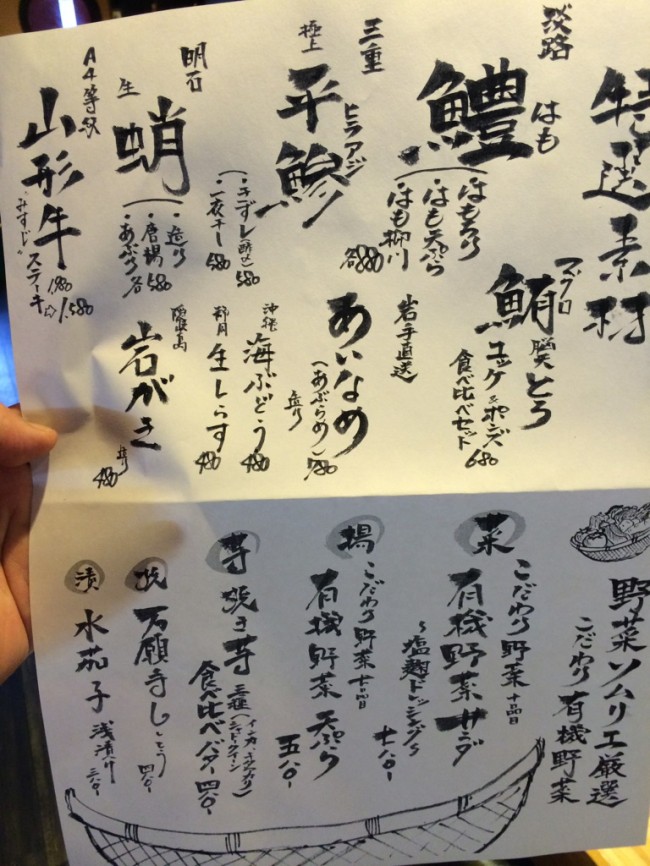 特選素材
淡路
鱧
はも
・はもちり
・はも天ぷら
・はも柳川
各880
三重
極上
平鯵
ヒラアジ
・きずし(酢〆)580
・一夜干し580
明石
生
蛸
・造り
・唐揚580
・あぶり各
A4等級
山形牛
"みすじ"ステーキ
1980
⇨1.580
マグロ
鮪
脳天とろ
ユッケ&ポンズ
食べ比べセット
680
岩手直送
あいなめ
(あぶらめ)
造り
780
沖縄
海ぶどう
480
生しらす
480
岩がき
480
野菜ソムリエ厳選
こだわり有機野菜
菜
こだわり野菜十品目
有機野菜サラダ
〜塩麹ドレッシング〜
七八〇-
揚
こだわり野菜七品目
有機野菜天ぷら
五八〇-
芋
焼き芋三種
食べ比べバター四八〇-
焼
万願寺しとう
四八〇-
漬
水茄子浅漬け
三八〇-